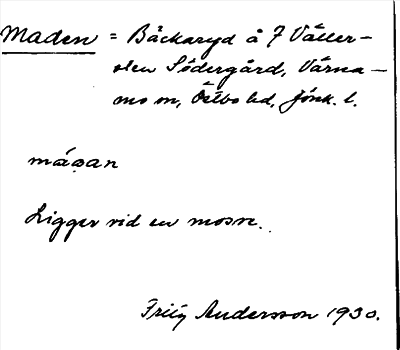 Maden = Bäckaryd å 7 Väller-
sten Södergård, Värna-
mo sn, Östbo hd, Jönk. l.
máɷan
Ligger vid en mosse.
Fritz Andersson 1930.